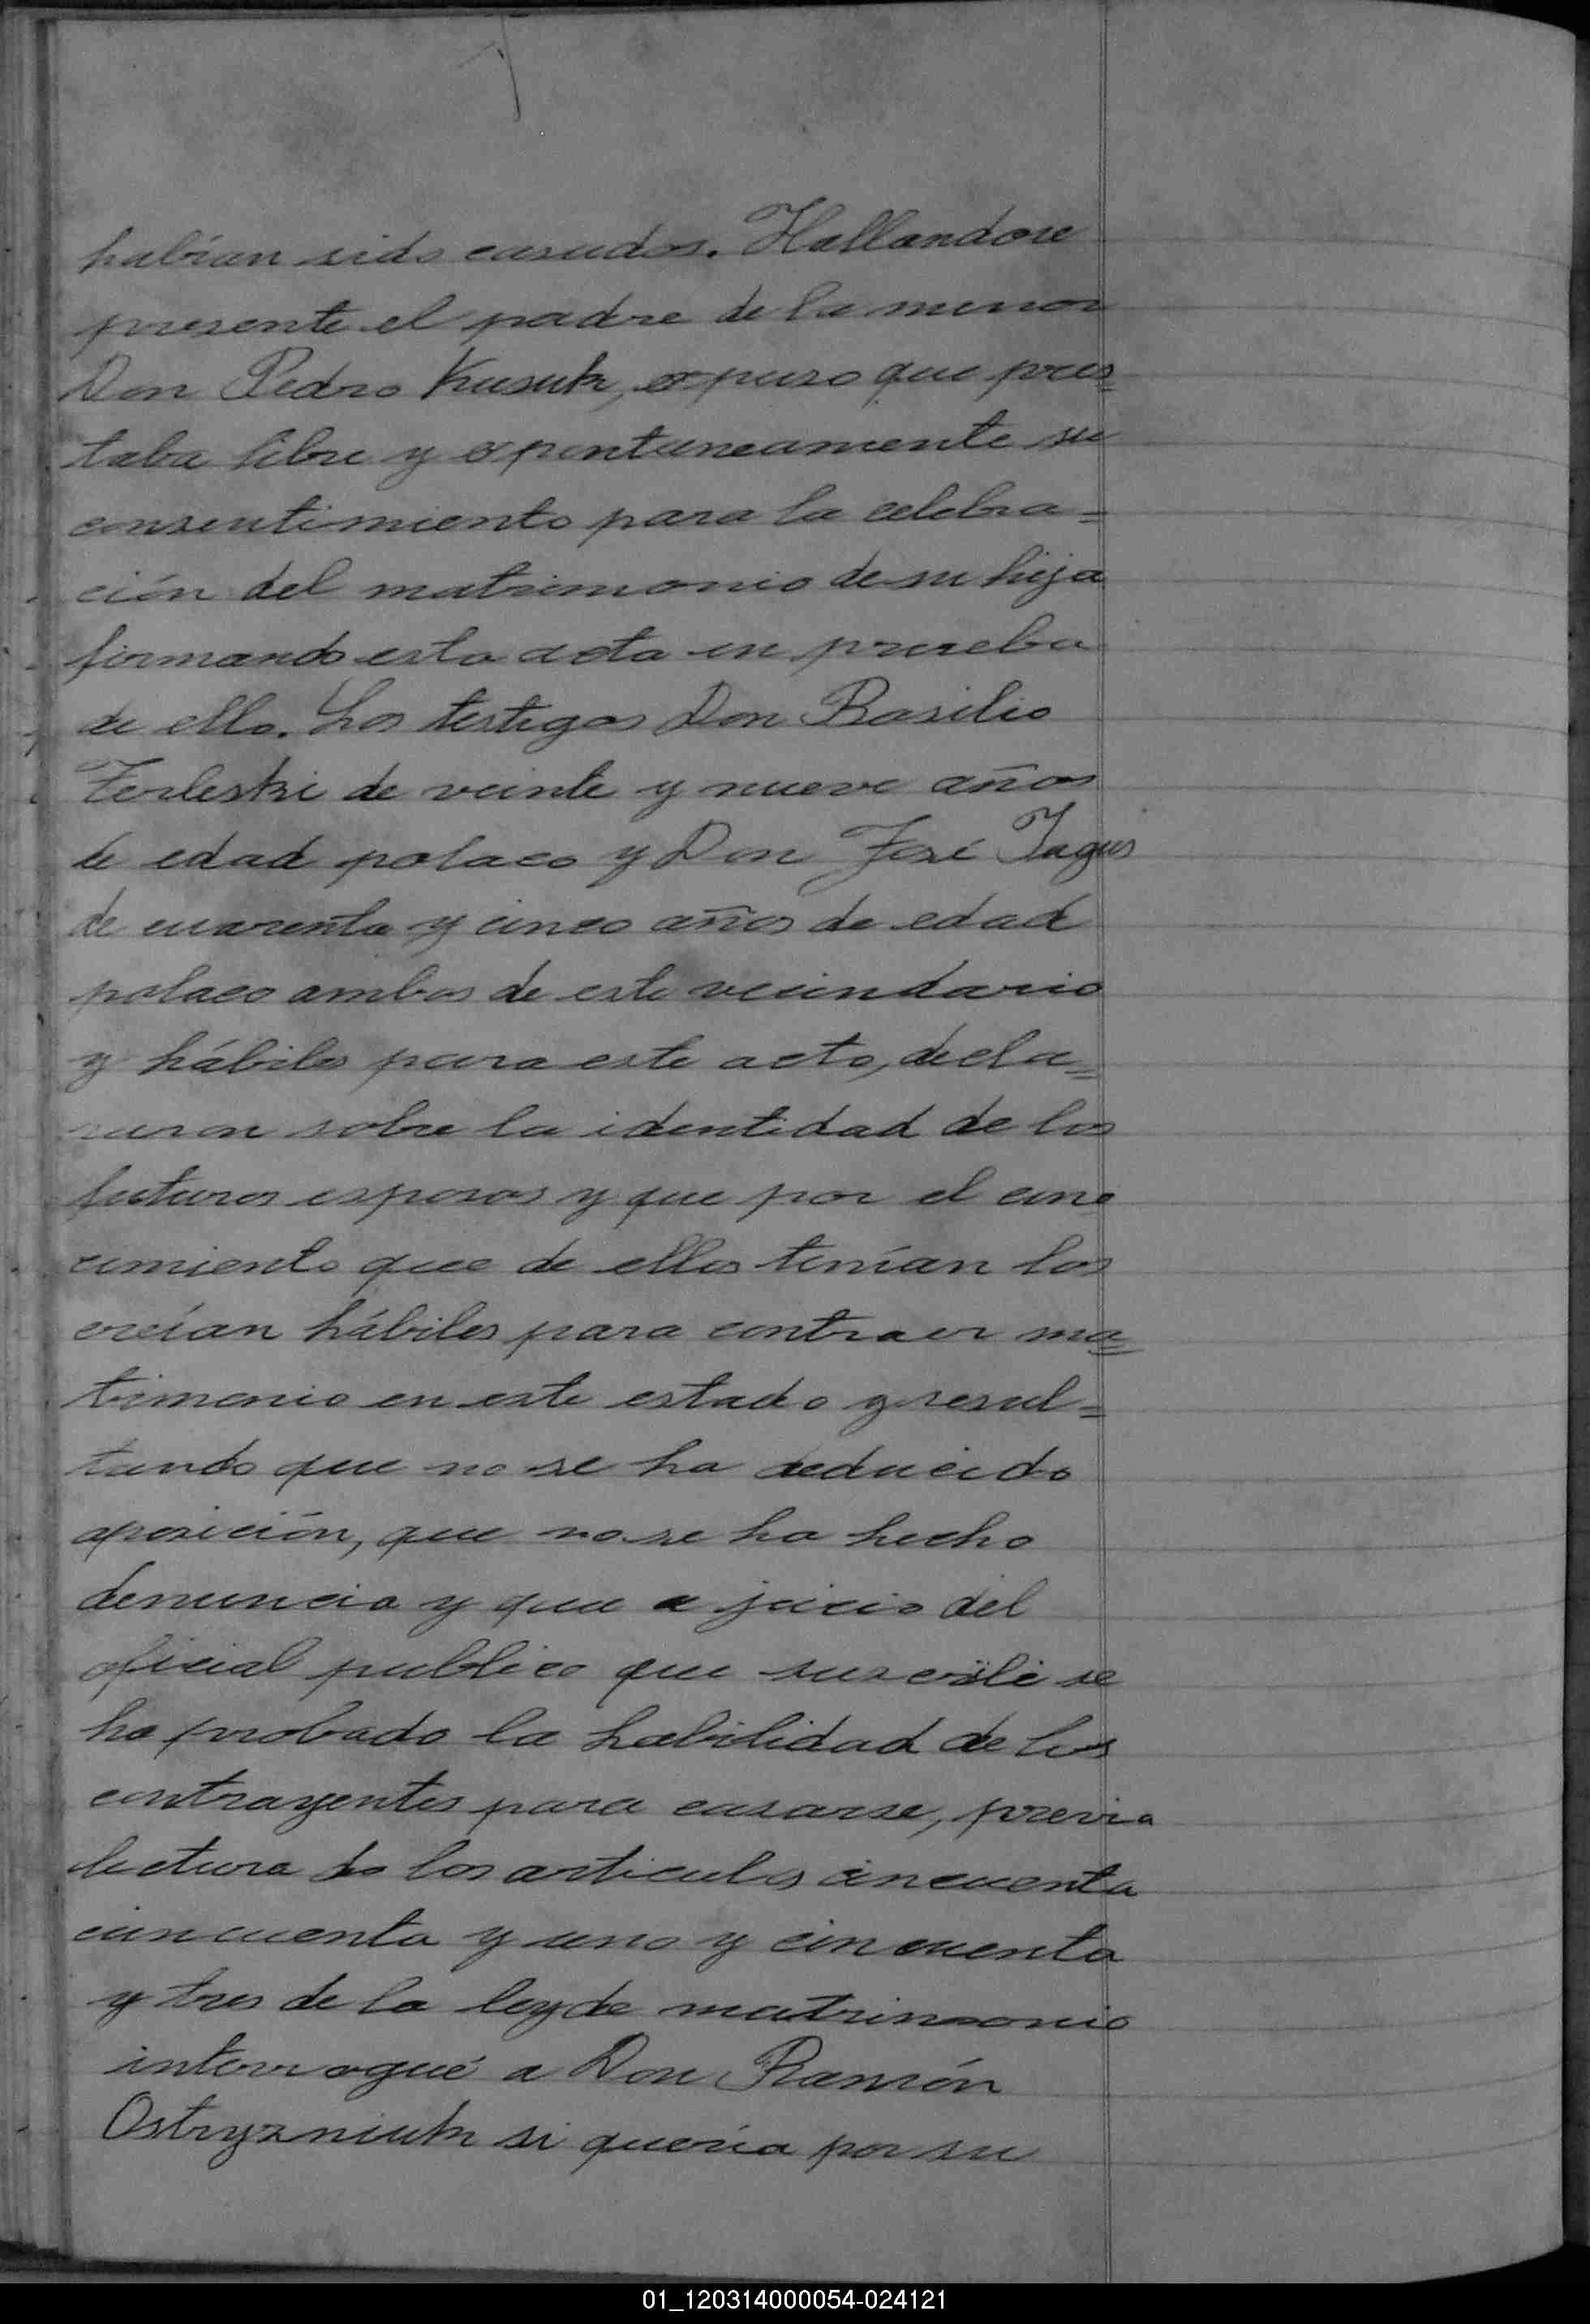 habían sido casados. Hallandose
presente el padre de la menor
Don Pedro Kusuk, expuso que pres=
taba libre y expontaneamente su
consentimiento para la celebra=
ción del matrimonio de su hija
firmando esta acta en prueba
de ello. Los testigos Don Basilio
Terleski de veinte y nueve años
de edad polaco y Don José Jagus
de cuarenta y cinco años de edad
polaco ambos de este vecindario
y hábiles para este acto, decla=
raron sobre la identidad de los
futuros esposos y que por el cono
cimiento que de ellos tenían los
creían hábiles para contraer ma=
trimonio en este estado y resul=
tando que no se ha deducido
oposición, que no se ha hecho
denuncia y que a juicio del
oficial publico que suscribe se
ha probado la habilidad de los
contrayentes para casarse, previa
lectura de los articulos cincuenta
cincuenta y uno y cincuenta
y tres de la ley de matrimonio
interrogué a Don Ramón
Ostryzniuk si quería por su
01_120314000054-024121